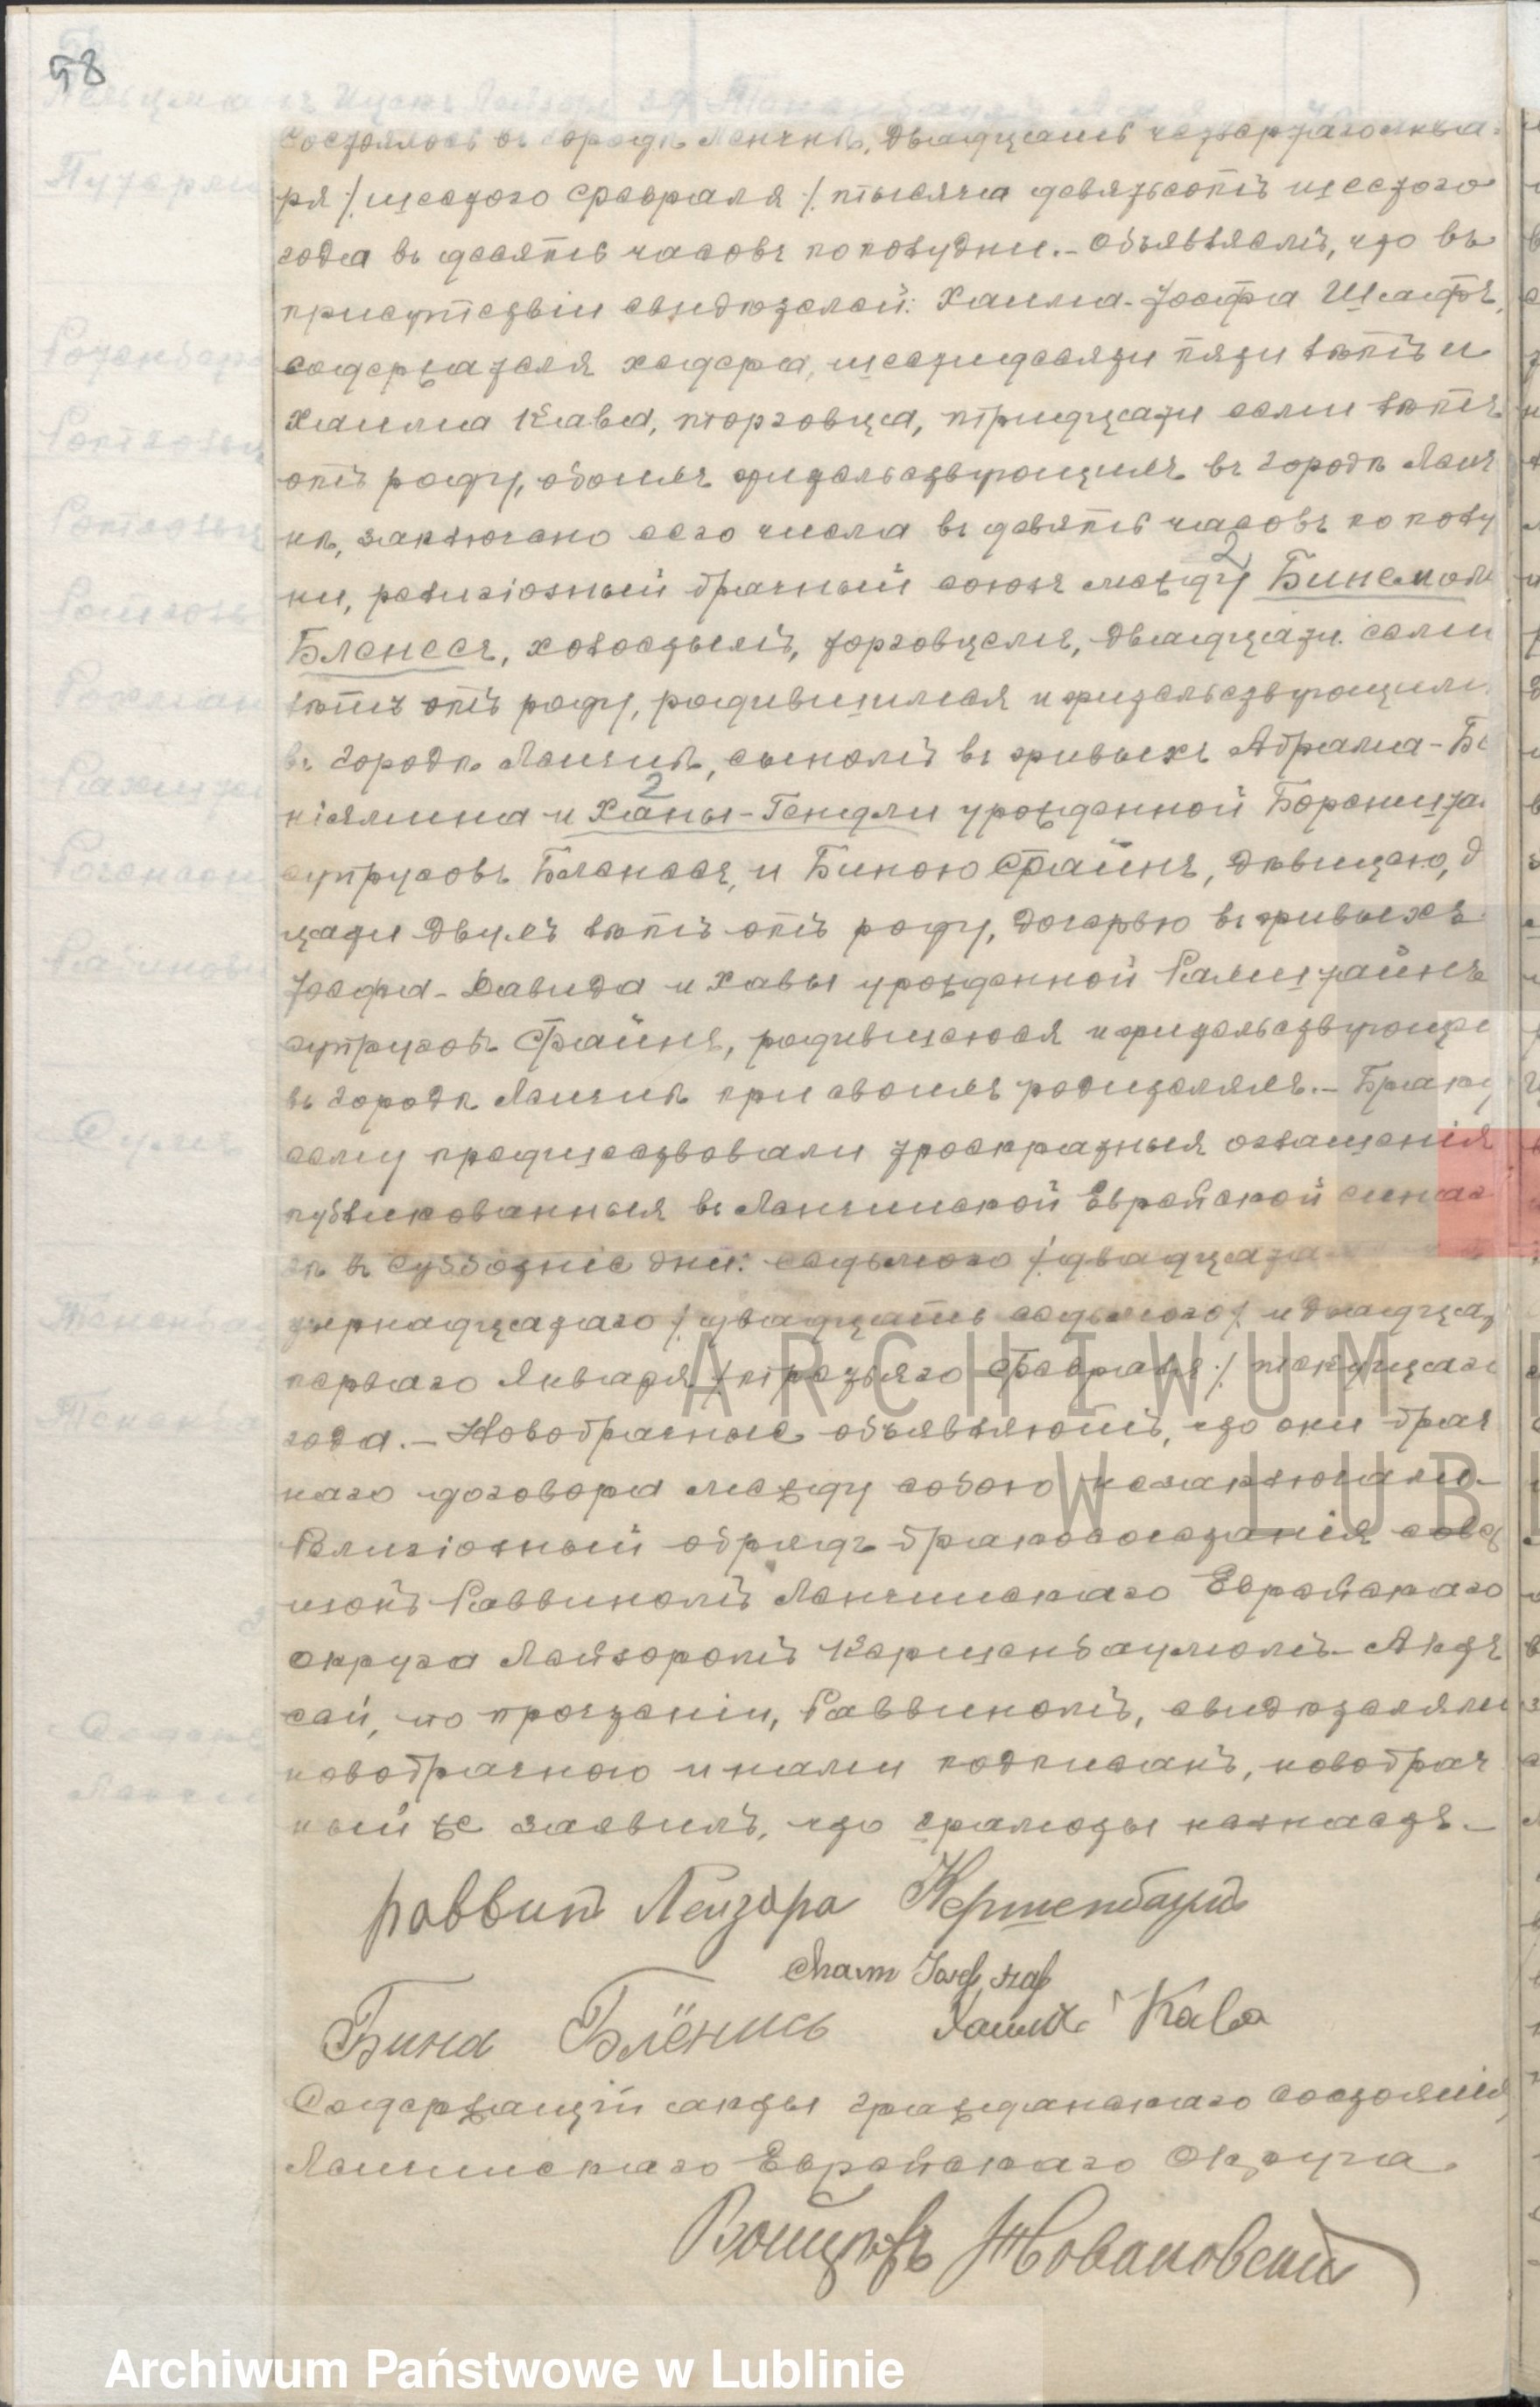 58
Состоялось въ городѣ Ленчнѣ, двадцать четвертаго Янва-
ря /. шестого Февраля ./ тысяча девятьсотъ шестого
года въ десять часовъ пополудни.- Объявляемъ, что въ
присутствіи свидѣтелей: Хаима-Іосфа Шафъ,
содержателя хедера, шестидесяти пяти лѣтъ и
Хаима Кава, торговца, тридцати семи лѣтъ
отъ роду, обоихъ жительствующихъ въ городѣ Ленч
нѣ, заключено сего числа въ девять часовъ по полу
ни, религіозный брачный союзъ между 2 Бинемом
Бленесъ, холостымъ, торговцемъ, двадцати семи
лѣтъ отъ роду, родившимся и жительствующимъ
въ городѣ Ленчнѣ, сыномъ въ живыхъ Абрама-Бе
ніямина и 2 Ханы-Гендли урожденной Бореншта
супруговъ Бленесъ, и Биною Файнъ, дѣвицею, д
цати двухъ лѣтъ отъ роду, дочерью въ живыхъ
Іосфа-Давида и Хавы урожденной
супруговъ Файнъ, родившеюся и жительствующе
въ городѣ Ленчнѣ при своихъ родителяхъ.- Браку
сему предшествовали троекратныя оглашенія
публикованныя въ Ленчнской Еврейской синаг
гѣ въ субботніе дни: седьмого /. двадцата
тырнадцатаго /. двадцать седьмого ./ и двадцат
перваго Января /. третьяго Февраля ./ текущаго
года.- Новобрачные объявляютъ, что они брач
наго договора между собою незаключали.-
Религіозный обрядъ бракосочетанія совер
шенъ Раввиномъ Ленчнскаго Еврейскаго
округа Лейзоромъ Кершенбаумомъ.- Актъ
сей, по прочтеніи, Раввиномъ, свидѣтелями
новобрачною и нами подписанъ, новобрач
ный же заявилъ, что грамоты незнаетъ.-
раввинъ Лейзоръ Кершенбаумъ
Chaim Josef Szaf
Бина Блёнись Хаимъ Кава
Содержащій акты гражданскаго состоянія
Ленчнскаго Еврейскаго Округа.
ARCHIWUM
W LUB
Archiwum Państwowe w Lublinie